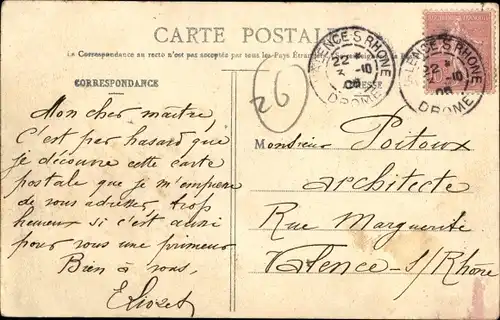 CARTE POSTALE
La Correspondance au recto n'est pas acceptée par tous les Pays Étran
CORRESPONDANCE
VALENCE S RHONE
22 -10
05
DROME
VALENCE S RHONE
22 -10
05
DROME
26
Mon cher maître,
C'est par hasard que
je découvre cette carte
postale que je m'empresse
de vous adresser, trop
heureux si c'est aussi
pour vous une primeur
Bien à vous,
Monsieur Poitoux
architecte
Rue Marguerite
Valence-s/Rhône